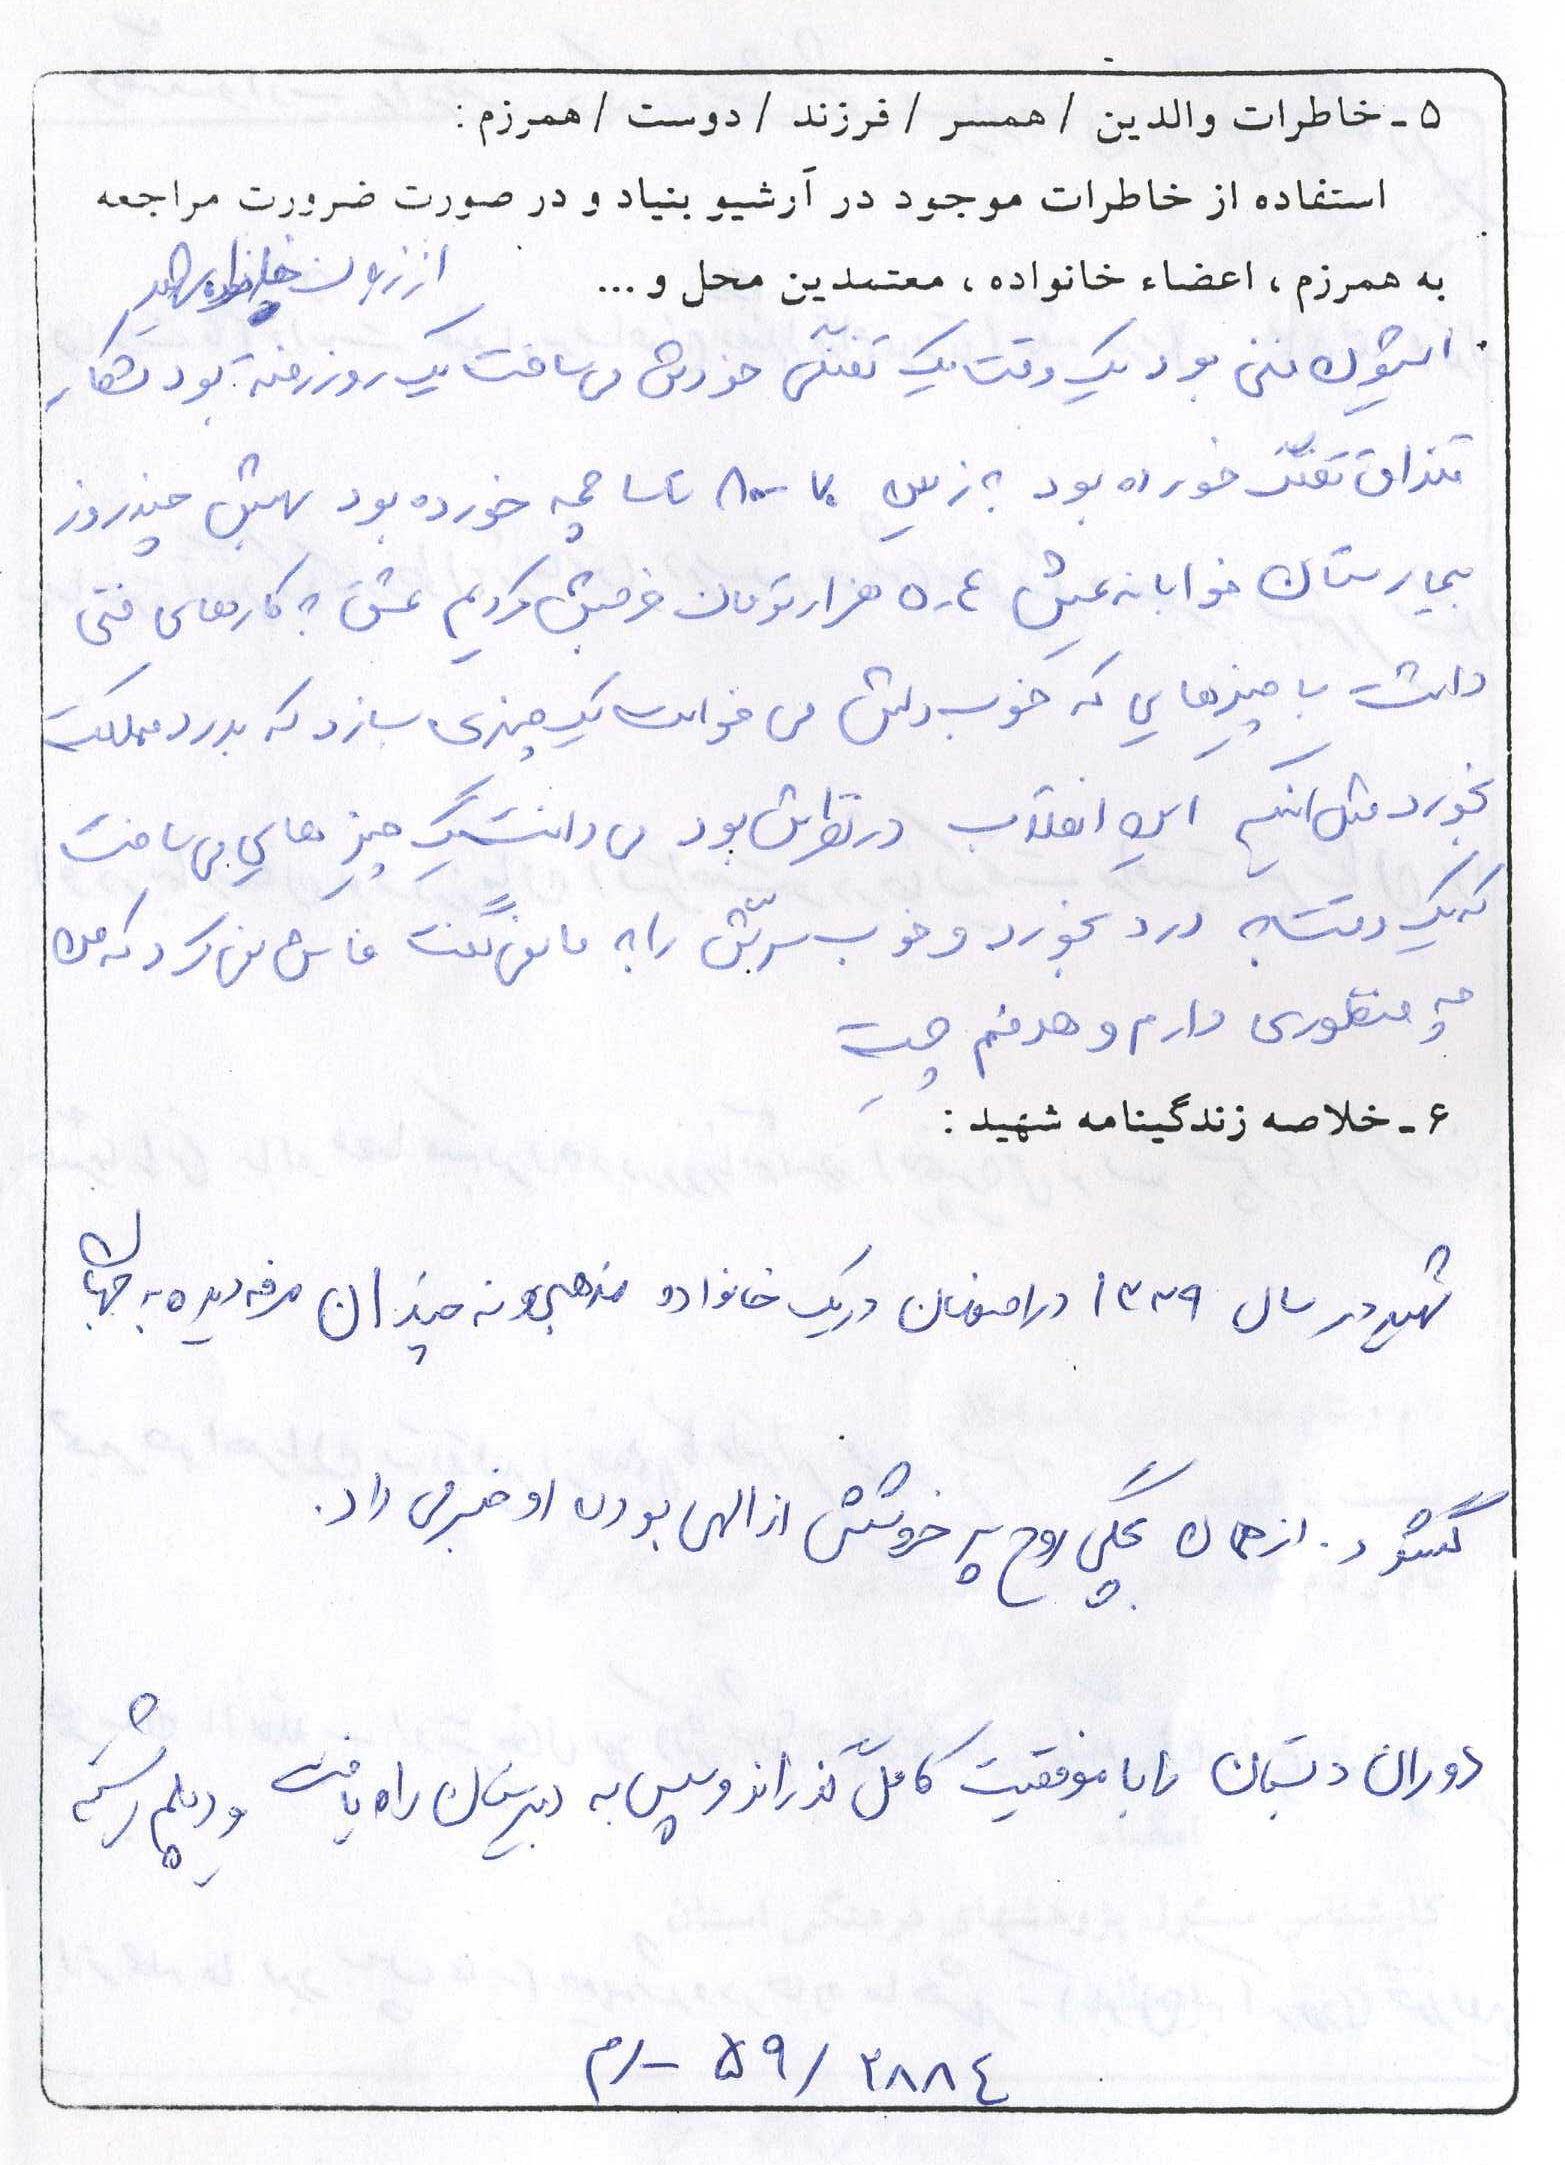 ۵ - خاطرات والدین / همسر / فرزند / دوست / همرزم :
استفاده از خاطرات موجود در آرشیو بنیاد و در صورت ضرورت مراجعه
به همرزم ، اعضاء خانواده ، معتمدین محل و ...
از زبان خانواده شهید
ایشون فنی بود یک وقت یک تفنگی خودش می ساخت یک روز رفته بود شکار
قنداق تفنگ خورده بود به زمین ۷۰ - ۸۰ تا ساچمه خورده بود بهش چند روز
بیمارستان خوابانه عیش ۴ـ۵ هزار تومان خرجش کردیم عشق به کارهای فنی
داشت با چیزهایی که خوب دلش می خواست یک چیزی بسازد که بدرد مملکت
بخورد مثل اینکه این انقلاب در نظرش بود می دانست یک چیزهایی می ساخت
که یک وقت به درد بخورد و خوب سرّش را به ما نمی گفت فاش نمی کرد که من
چه منظوری دارم و هدفم چیست
۶ - خلاصه زندگینامه شهید :
شهید در سال ۱۳۳۹ در اصفهان در یک خانواده مذهبی و نه چندان مرفه دیده به جهان
گشود . از همان بچگی روح پر خروشش از الهی بودن او خبر می داد .
دوران دبستان را با موفقیت کامل گذراند و سپس به دبیرستان راه یافت و دیپلم رشته
۳۸۸۴ / ۵۹ - رم